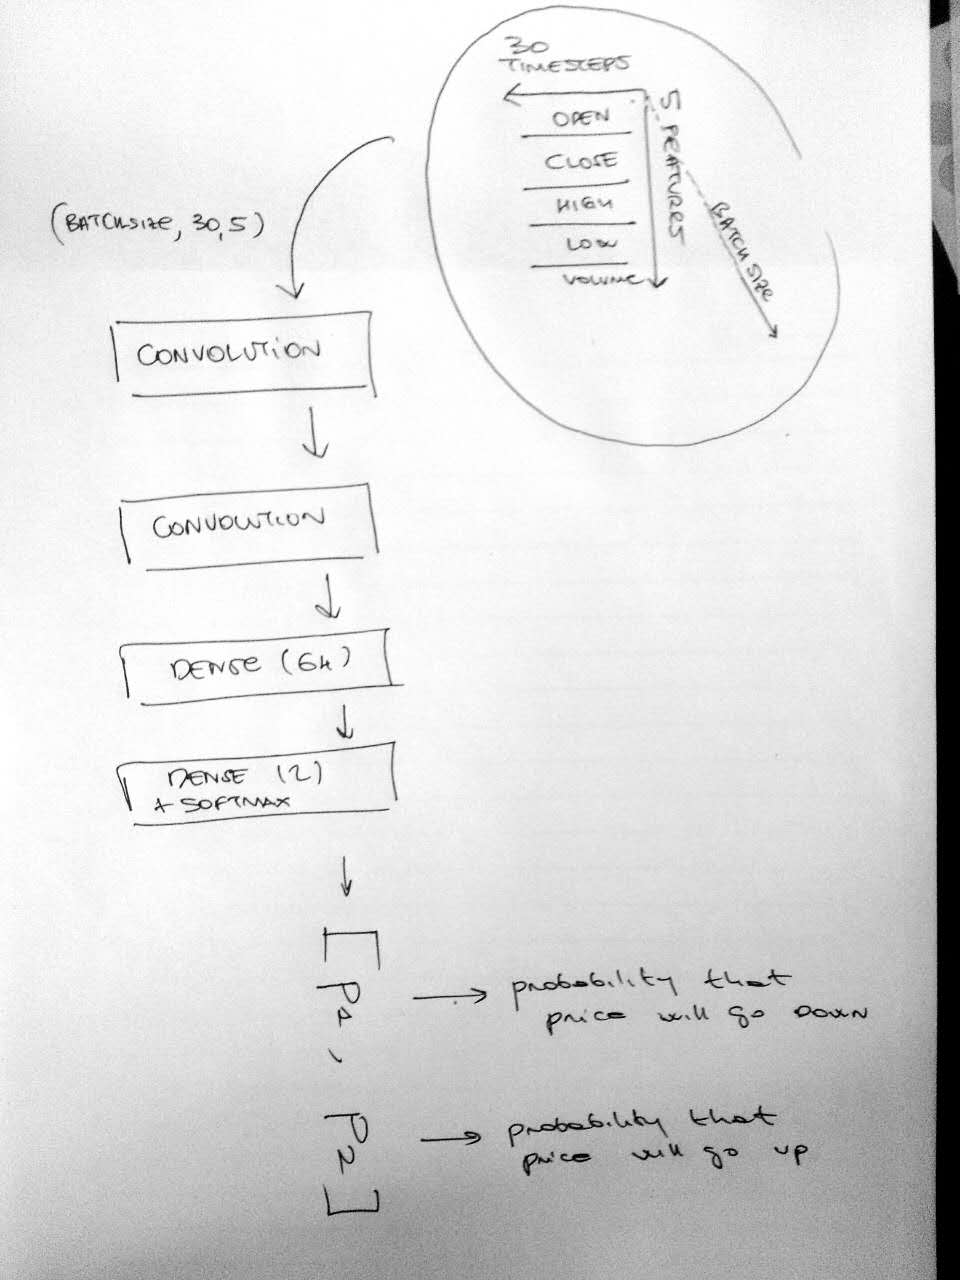 30
TIMESTEPS
OPEN
CLOSE
HIGH
LOW
VOLUME
5 FEATURES
BATCH SIZE
(BATCHSIZE, 30, 5)
CONVOLUTION
CONVOLUTION
DENSE (64)
DENSE (2)
+ SOFTMAX
[
P1
,
probability that
price will go DOWN
P2
]
probability that
price will go up